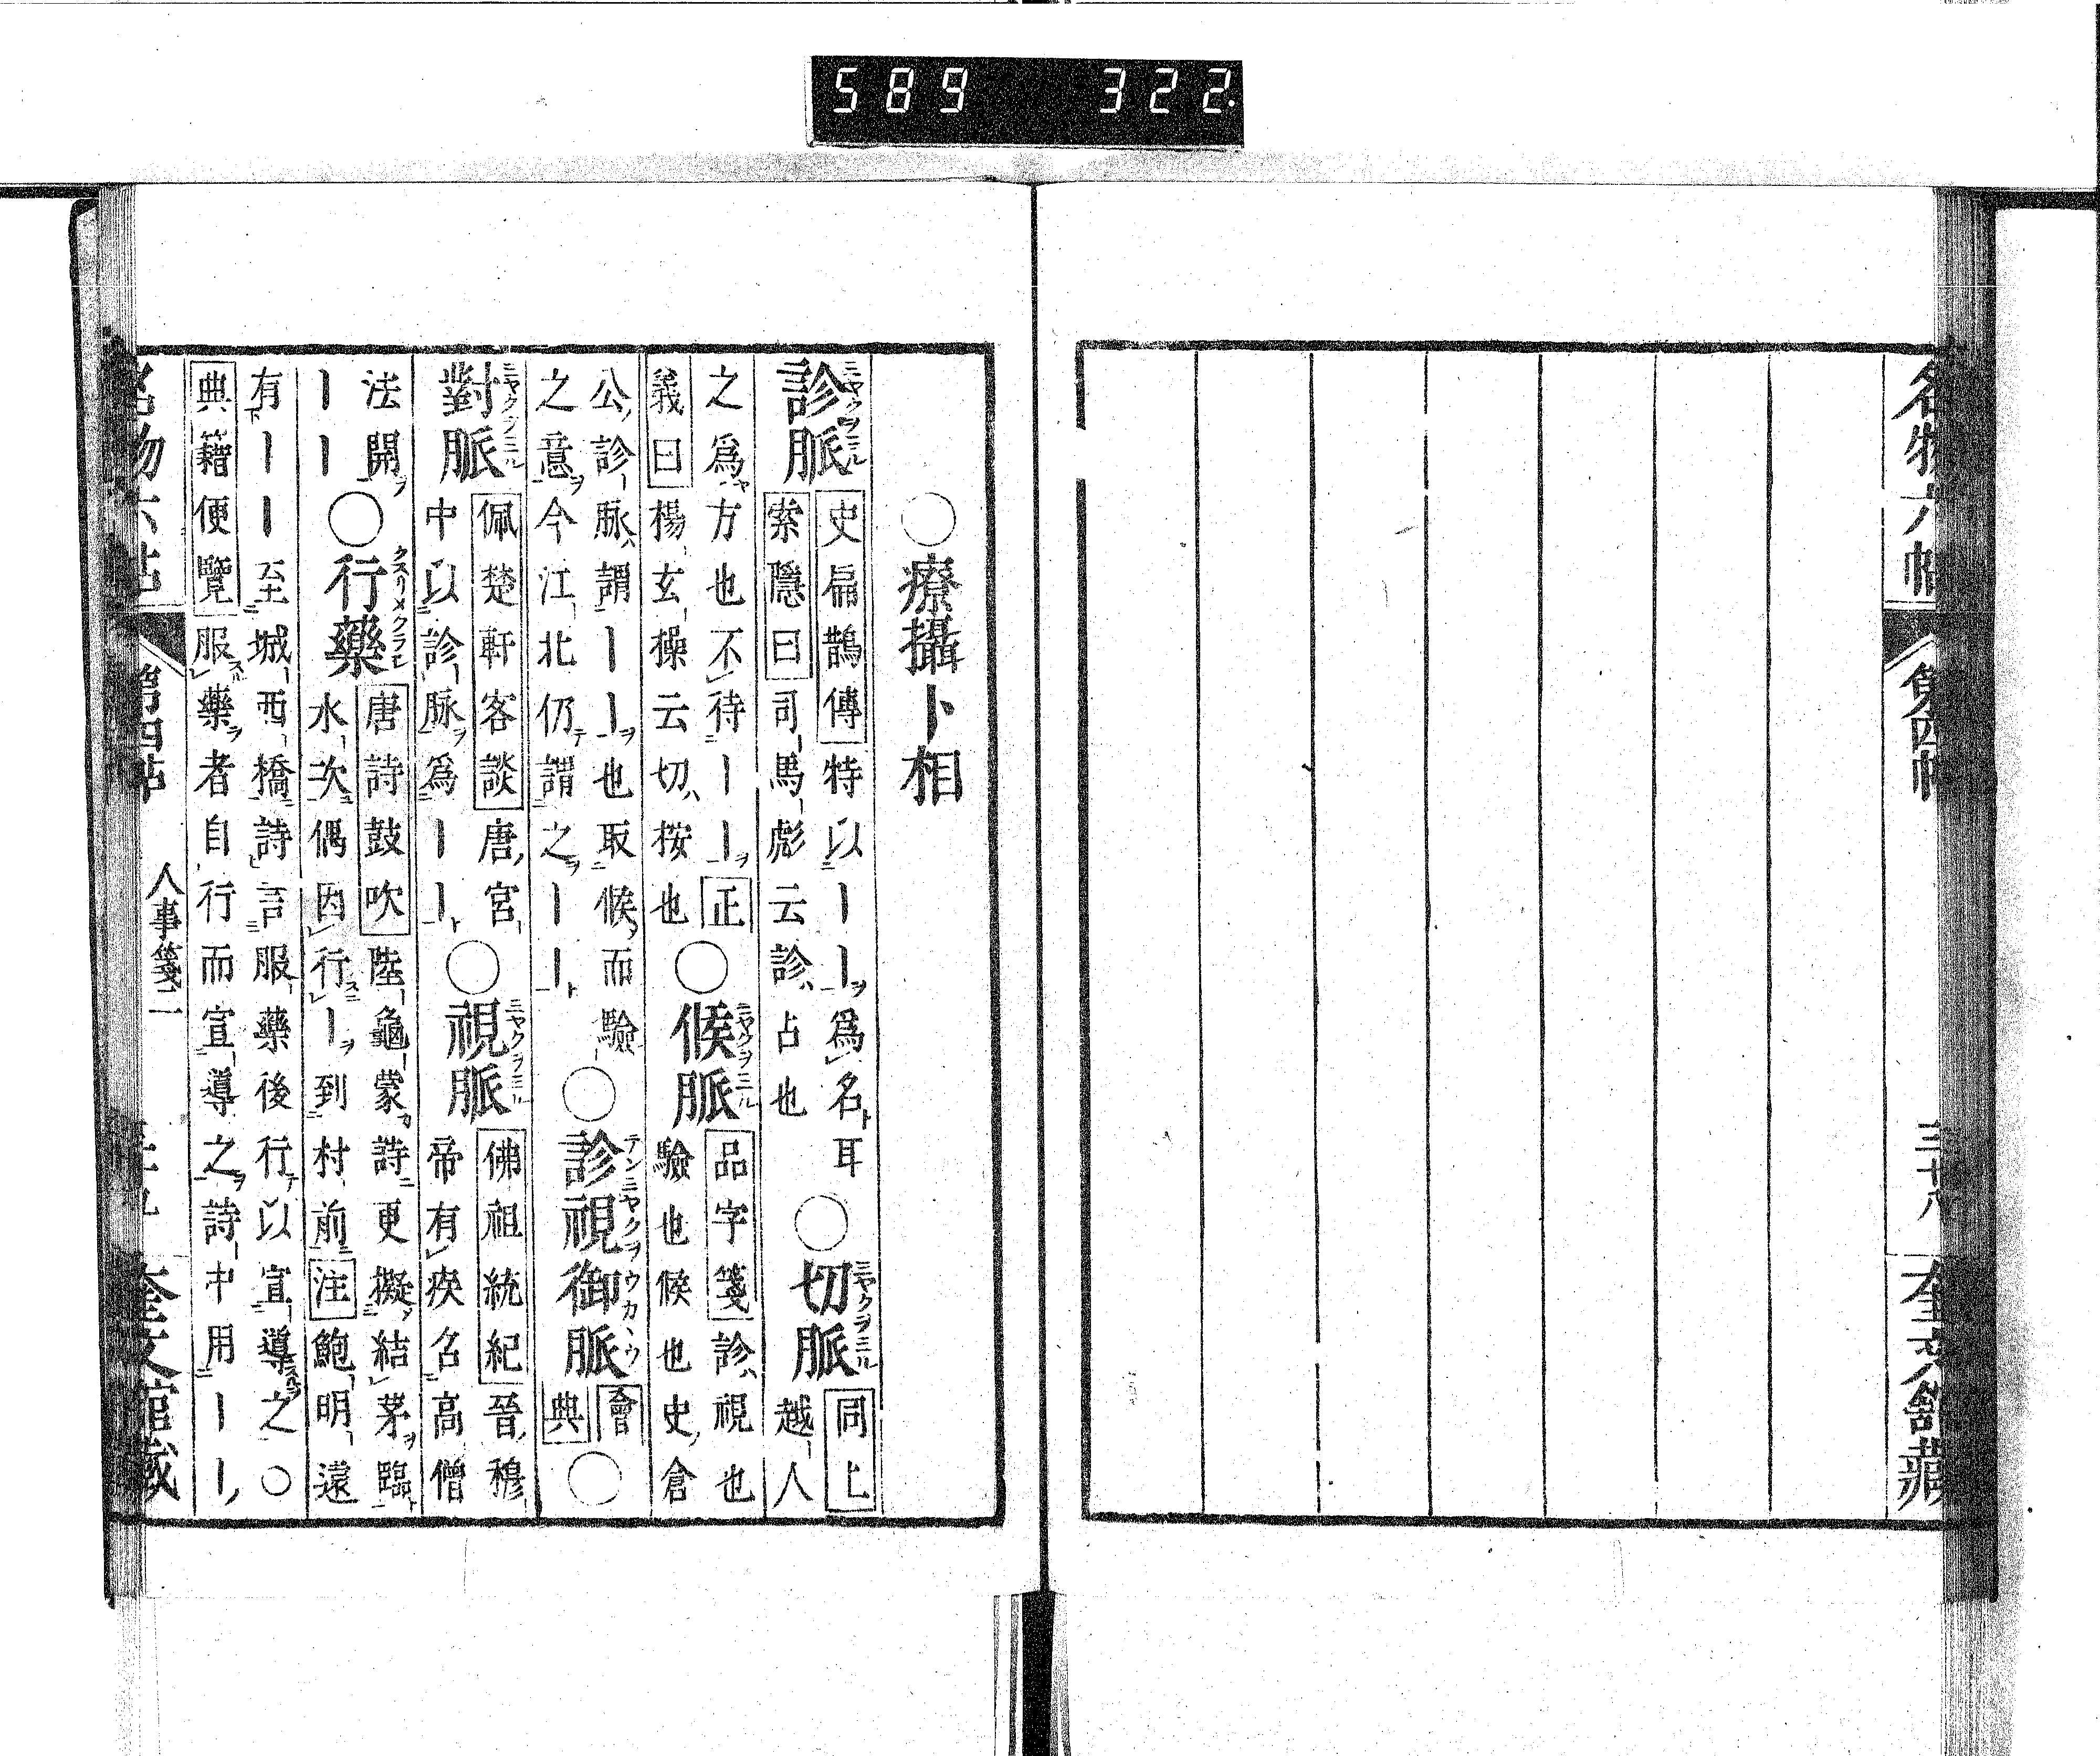 589 322.
名物六帖 第四帖 三十八 奎文館藏
○療攝卜相
診脈 ミヤクヲミル
史扁鵲傳 特以｜｜ヲ為名ト耳
索隱曰 司馬彪云診ハ占也
○切脈 ミヤクヲミル
同上
越人
之為ヤ方也不待｜｜ヲ 正
義曰 楊玄操云切ハ按也
○候脈 ミヤクヲミル
品字箋 診ハ視也
驗也候也史倉
公診脉ハ謂｜｜ヲ也取候而驗
之意ヲ今江北仍テ謂之ヲ｜｜ト
○診視御脈 テンミヤクヲウカヽウ
會
典
○
對脈 ミヤクヲミル
佩楚軒客談 唐宮
中以診脉ヲ為｜｜ト
○視脈 ミヤクヲミル
佛祖統紀 晉穆
帝有疾召高僧
法開ヲ
｜｜
○行藥 クスリメクラセ
唐詩鼓吹 陸龜蒙カ詩更擬結茅ヲ臨
水次偶因行｜ヲ到村前 注 鮑明遠
有｜｜至城西橋詩言服藥後行テ以宣導之○
典籍便覽 服藥ヲ者自行而宣導之ヲ詩中用｜｜
名物六帖 第四帖 人事箋二 奎文館藏